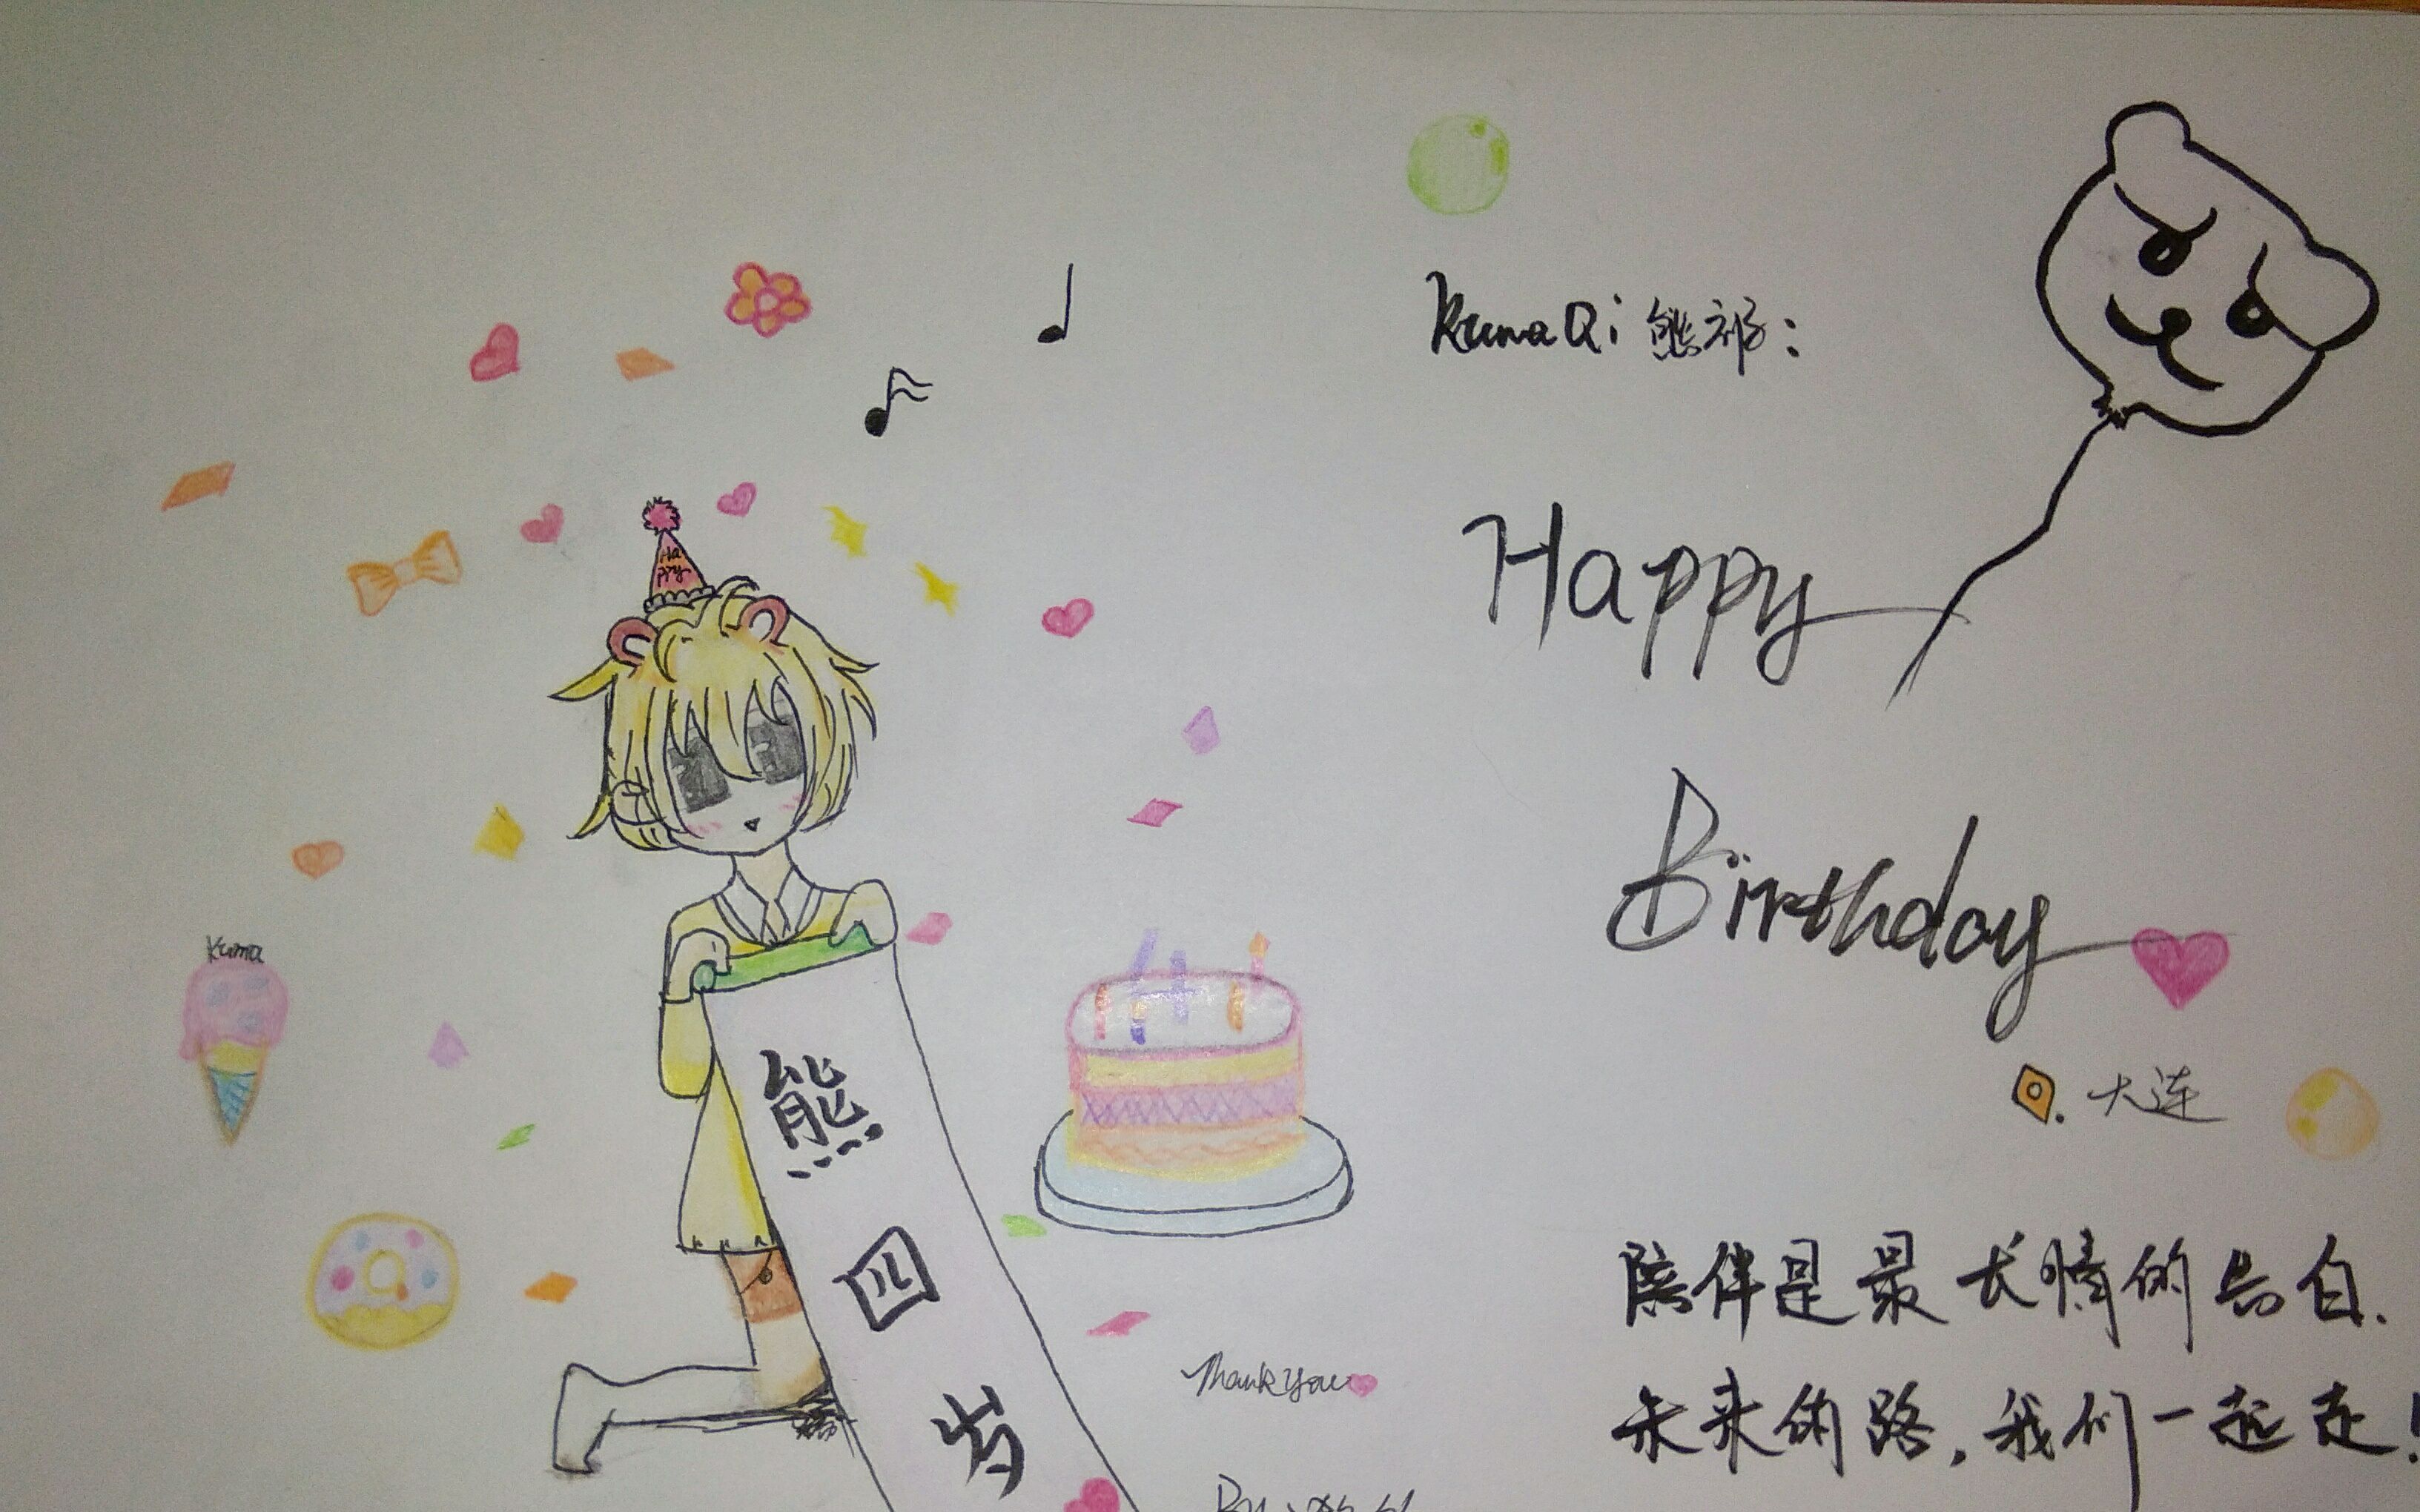 KumaQi熊祁:
Happy
Birthday
大连
陪伴是最长情的告白.
未来的路,我们一起走!
Ha
ppy
Kuma
熊四岁
Thank You
By